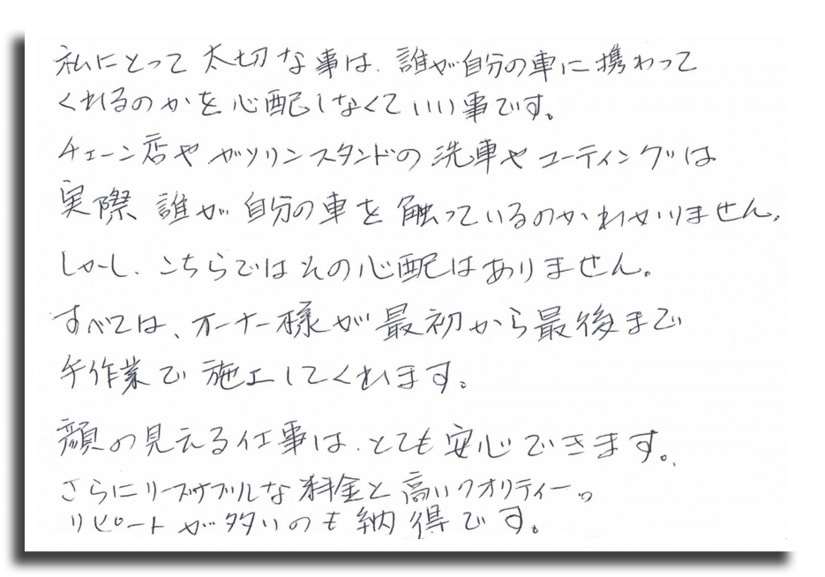 私にとって大切な事は、誰が自分の車に携わって
くれるのかを心配しなくていい事です。
チェーン店やガソリンスタンドの洗車やコーティングは
実際誰が自分の車を触っているのかわかりません。
しかし、こちらではその心配はありません。
すべては、オーナー様が最初から最後まで
手作業で施工してくれます。
顔の見える仕事は、とても安心できます。
さらにリーズナブルな料金と高いクオリティー。
リピートが多いのも納得です。